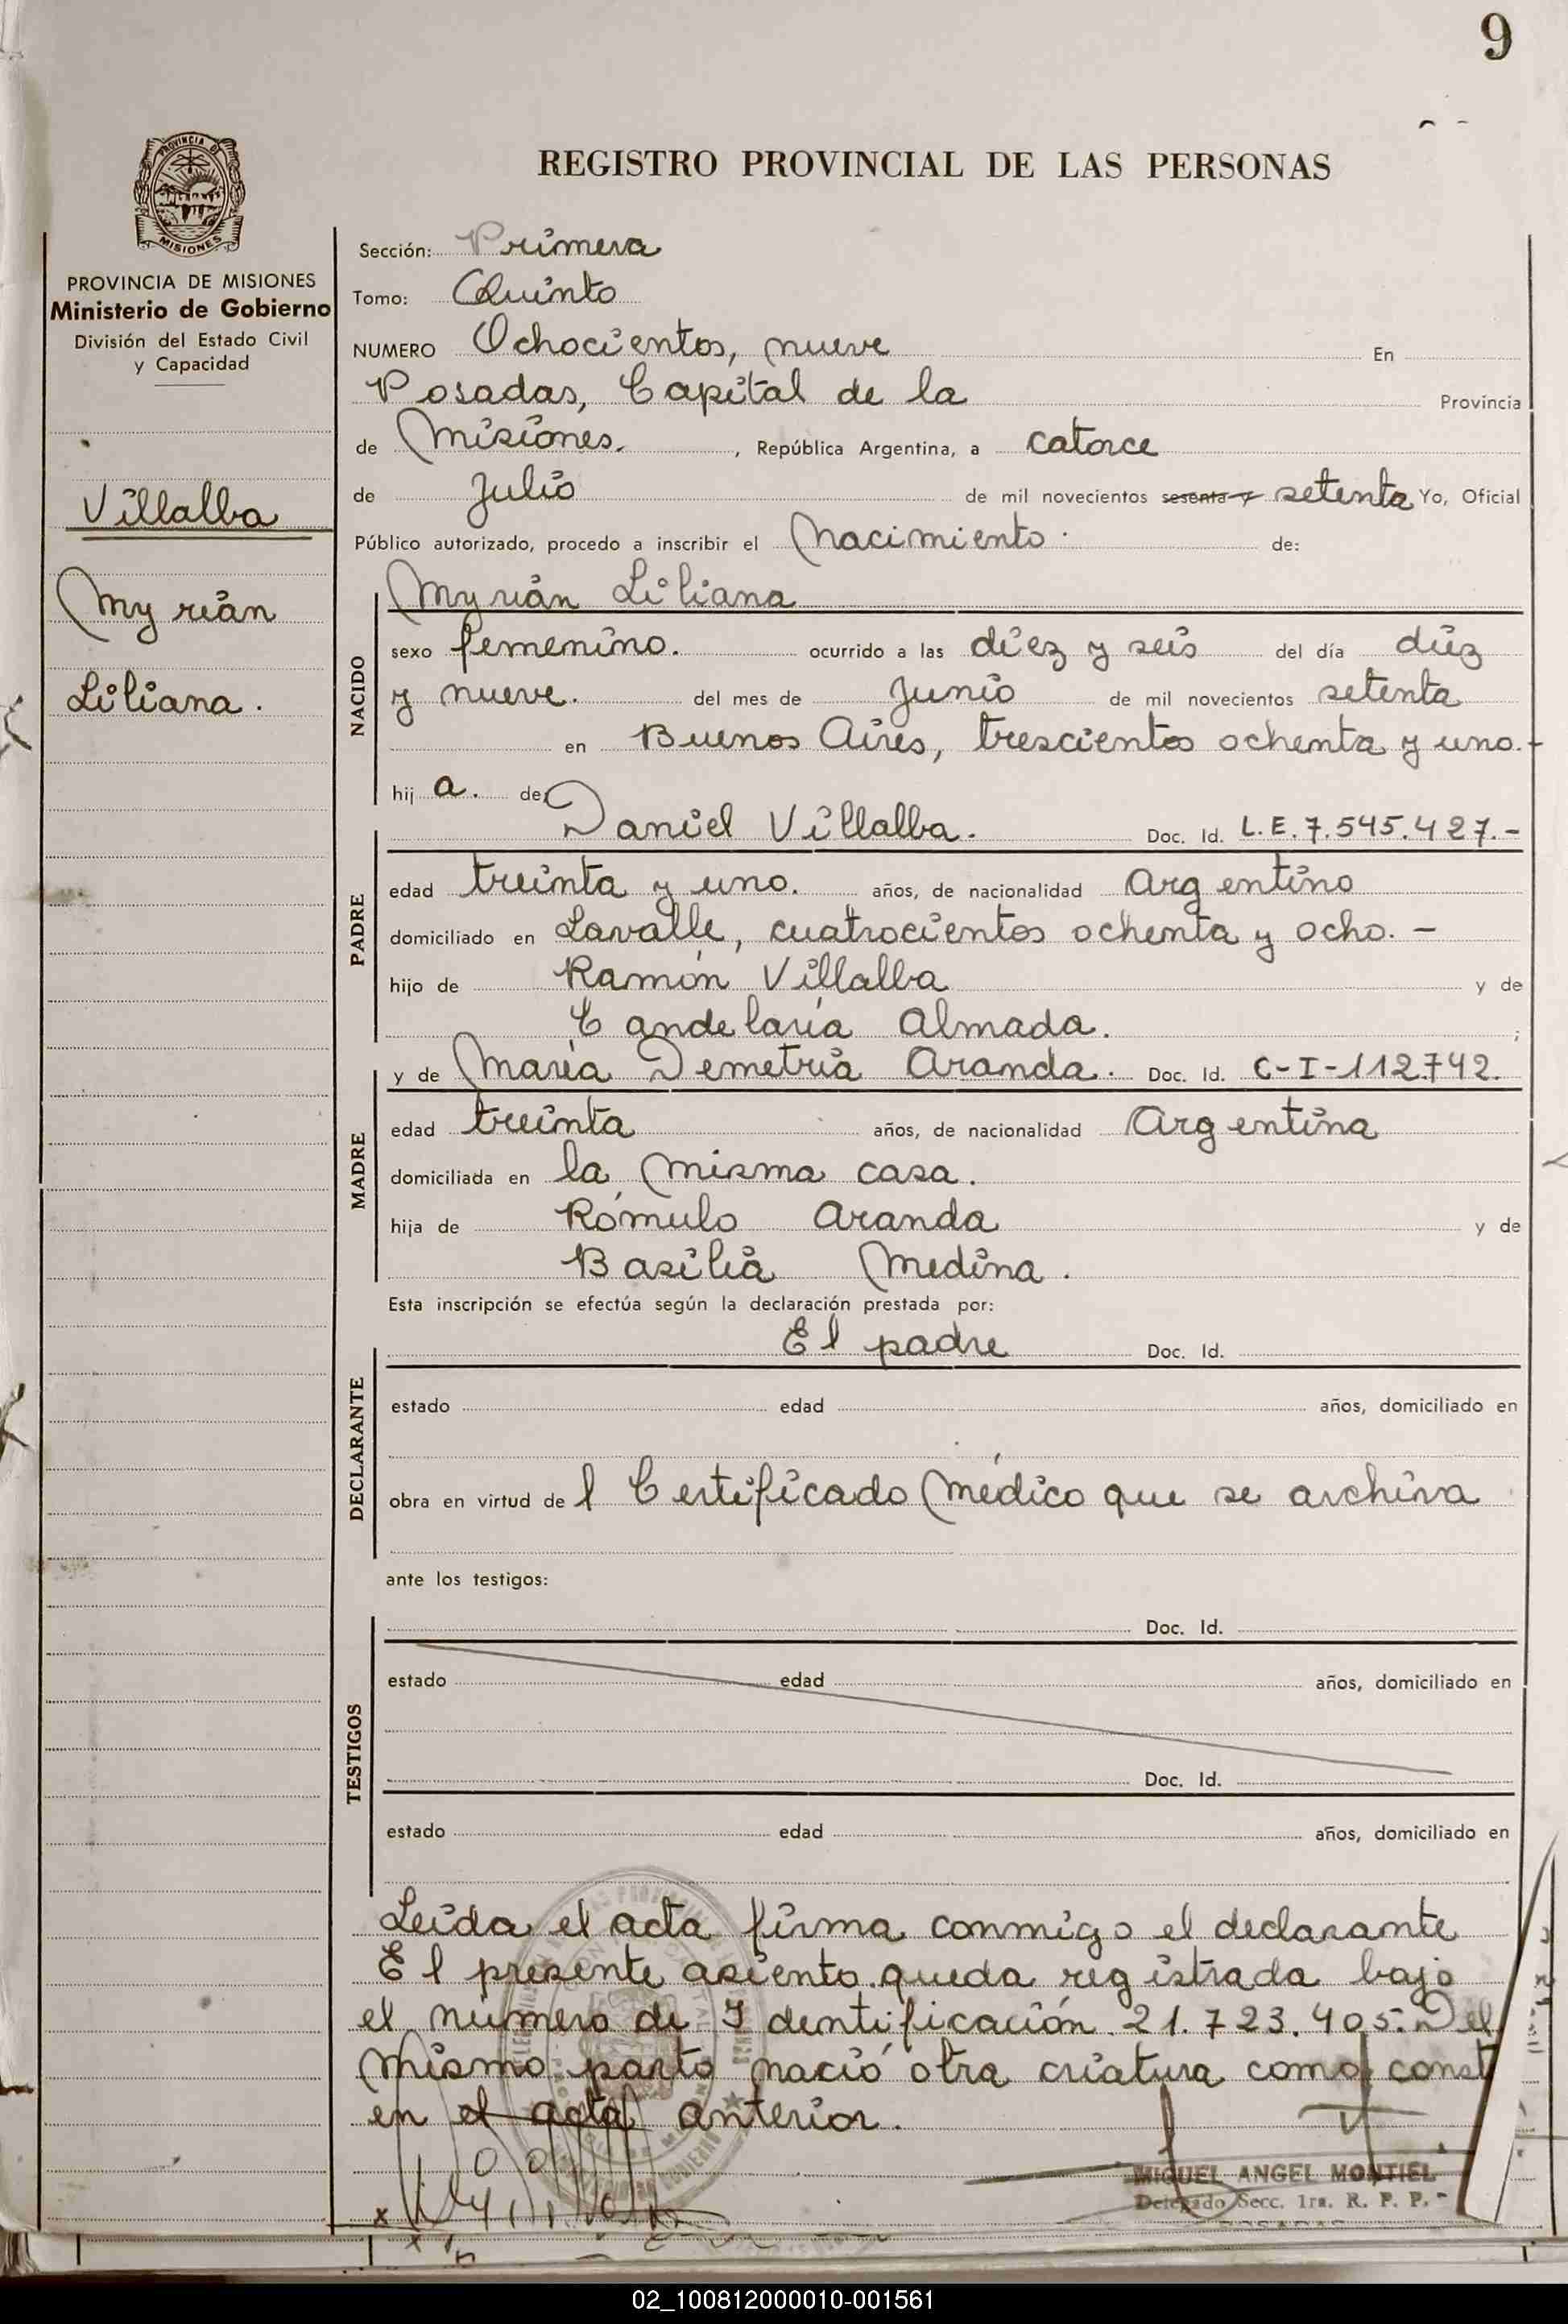 9
REGISTRO PROVINCIAL DE LAS PERSONAS
PROVINCIA DE
MISIONES
PROVINCIA DE MISIONES
Ministerio de Gobierno
División del Estado Civil
y Capacidad
Villalba
Myrián
Liliana.
Sección: Primera
Tomo: Quinto
NUMERO Ochocientos, nueve En
Posadas, Capital de la Provincia
de Misiones. , República Argentina, a catorce
de Julio de mil novecientos sesenta y setenta Yo, Oficial
Público autorizado, procedo a inscribir el Nacimiento de:
NACIDO
Myrián Liliana
sexo femenino. ocurrido a las diez y seis del día diez
y nueve. del mes de Junio de mil novecientos setenta
en Buenos Aires, trescientos ochenta y uno.-
hij a. de:
PADRE
Daniel Villalba. Doc. Id. L.E. 7.545.427.-
edad treinta y uno. años, de nacionalidad Argentino
domiciliado en Lavalle, cuatrocientos ochenta y ocho. -
hijo de Ramón Villalba y de
Candelaria Almada. ;
MADRE
y de María Demetria Aranda. Doc. Id. C-I-112.742.
edad treinta años, de nacionalidad Argentina
domiciliada en la misma casa.
hija de Rómulo Aranda y de
Basilia Medina.
Esta inscripción se efectúa según la declaración prestada por:
DECLARANTE
El padre Doc. Id.
estado edad años, domiciliado en
obra en virtud del Certificado Médico que se archiva
ante los testigos:
TESTIGOS
Doc. Id.
estado edad años, domiciliado en
Doc. Id.
estado edad años, domiciliado en
Leída el acta firma conmigo el declarante
El presente asiento queda registrada bajo
el número de Identificación 21.723.405. Del
mismo parto nació otra criatura como const
en el acta anterior.
MIGUEL ANGEL MONTIEL
Delegado Secc. 1ra. R. P. P.-
02_100812000010-001561